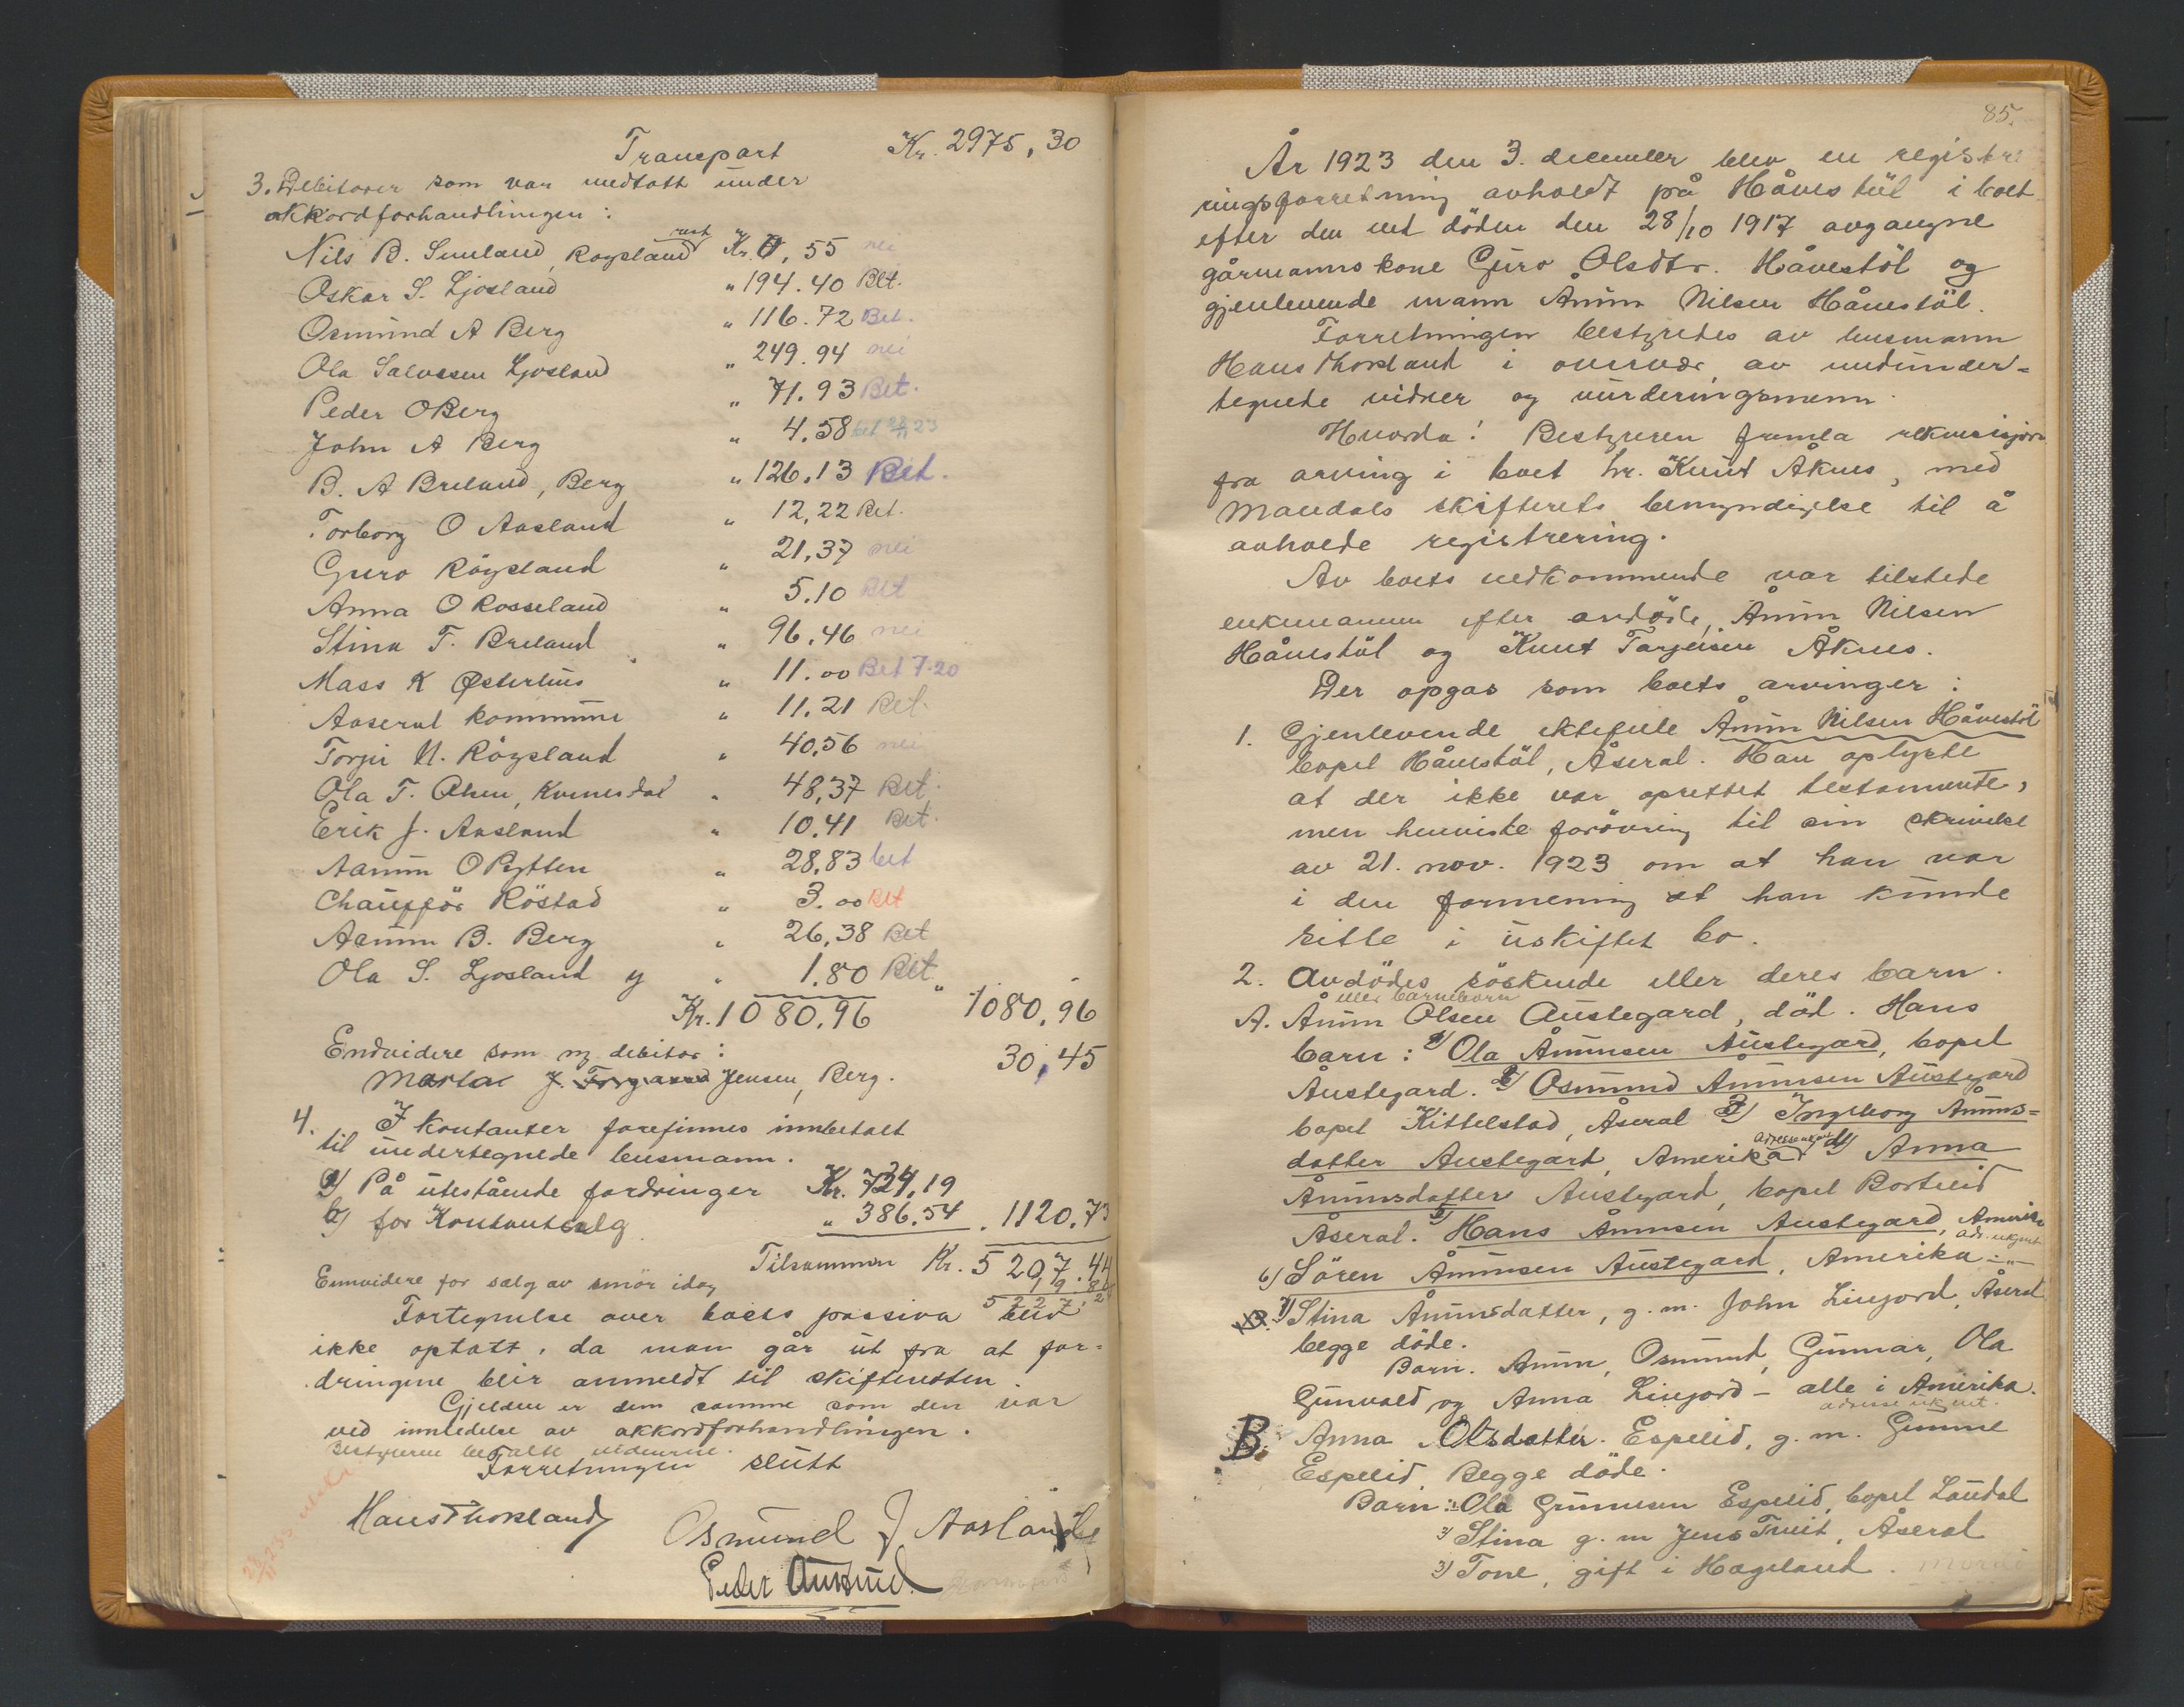 Transport Kr. 2975,30
3. Debitorer som var medtatt under
akkordforhandlingen:
Nils B. Smeland, Røysland rest Kr. 0,55 nei
Oskar S. Ljosland " 194.40 Bet.
Osmund A Berg " 116.72 Bet.
Ola Salvesen Ljosland " 249.94 nei
Peder O Berg " 71.93 Bet.
John A Berg " 4.58 bet 23
B. A Breland, Berg " 126,13 Bet.
Torborg O Aasland " 12,22 Bet.
Guro Röysland " 21,37 nei
Anna O Rosseland " 5.10 Bet
Stina T. Breland " 96.46 nei
Mass K Østerhus " 11.00 Bet 7.20
Aaseral kommune " 11.21 Bet.
Torjei N. Röysland " 40,56 nei
Ola T. Olsen, Kvinesdal " 48,37 Bet.
Erik J. Aasland " 10,41 Bet.
Aanun O Rytten " 28,83 bet
Chauffør Röstad " 3.00 Bet
Aanun B. Berg " 26,38 Bet
Ola S. Ljosland y " 1.80 Bet. "
Kr. 1080,96 1080,96
Endvidere som ny debitor:
Marta J. Jensen, Berg. 30,45
4. I kontanter forefinnes innbetalt
til undertegnede lensmann.
a) På utestående fordringer Kr. 734,19
b) for Kontantsalg " 386.54 . 1120.73
Tilsammen Kr. 5207.44
Ennvidere for salg av smör idag 19.8
5227,2
Fortegnelse over boets passiva blev
ikke optatt, da man går ut fra at for-
dringene blir anmeldt til skifteretten.
Gjelden er den samme som den var
ved innledelse av akkordforhandlingen.
Bestyreren betalte vidnerne.
Forretningen slutt
Hans Thorsland Osmund J Aasland
Peder Austrud
85.
År 1923 den 3. december blev en registre-
ringsforretning avholdt på Håvestöl i boet
efter den ved döden den 28/10 1917 avgangne
gårmannskone Guro Olsdtr. Håvestöl og
gjenlevende mann Ånun Nilsen Håvestöl.
Forretningen bestyredes av lensmann
Hans Thorsland i overvær av undtunder-
tegnede vidner og vurderingsmenn.
Hvorda! Bestyreren fremla rekvisisjon
fra arving i boet hr. Knut Åknes, med
Mandals skifterets bemyndigelse til å
avholde registrering.
Av boets vedkommende var tilstede
enkemannen efter avdöde, Ånun Nilsen
Håvestöl og Knut Torjeisen Åknes.
Der opgas som boets arvinger:
1. Gjenlevende ektefelle Ånun Nilsen Håvestöl
bopel Håvestöl, Åseral. Han oplyste
at der ikke var oprettet testamente,
men henviste forövrig til sin skrivelse
av 21. nov. 1923 om at han var
i den formening at han kunde
sitte i uskiftet bo.
2. Avdödes söskende eller deres barn.
eller barnebarn
A. Ånun Olsen Austegard, död. Hans
barn: 1) Ola Ånunsen Austegard, bopel
Austegard. 2) Osmund Ånunsen Austegard
bopel Kittelstad, Åseral 3) Ingeborg Ånuns-
datter Austegart, Amerika adresse ukjent 4) Anna
Ånunsdatter Austegard, bopel Bortelid
Åseral. 5) Hans Ånunsen Austegard, Amerika
adr. ukjent
6) Sören Ånunsen Austegard, Amerika -"-
7) Stina Ånunsdatter, g. m. John Liejord, Åseral
begge döde.
Barn. Ånun, Osmund, Gunnar, Ola
Gunvald og Anna Liejord - alle i Amerika.
adresse ukjent.
B. Anna Olsdatter Espelid, g. m. Gunne
Espelid. Begge döde.
Barn: 1) Ola Gunnesen Espelid, bopel Laudal
2) Stina g. m Jens Tveit, Åseral
3) Tone, gift i Hageland.